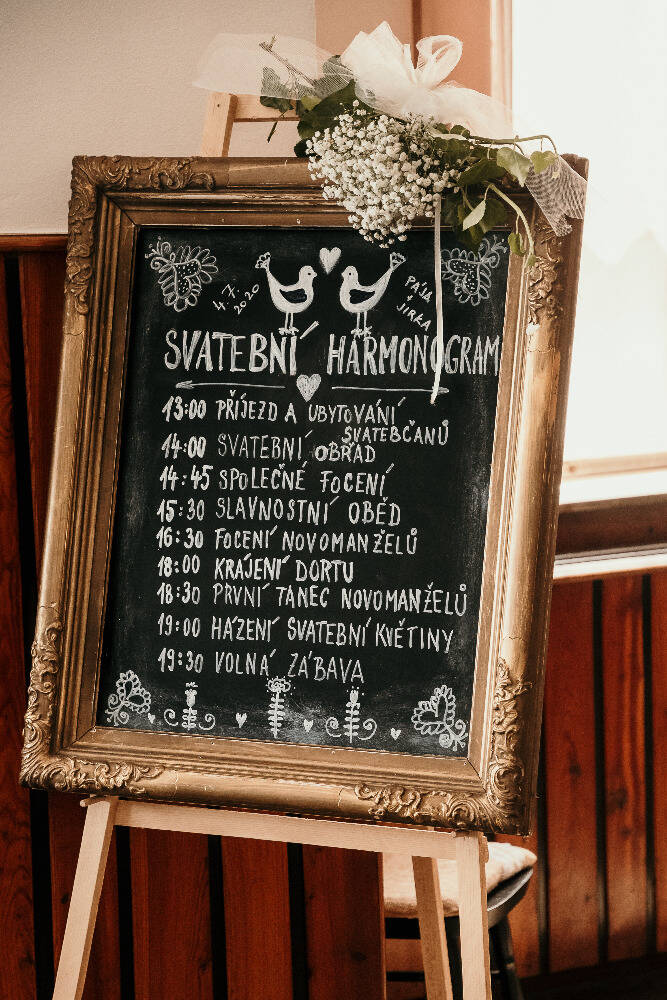 4.7.
2020
PÁJA
+
JIRKA
SVATEBNÍ HARMONOGRAM
13:00 PŘÍJEZD A UBYTOVÁNÍ
SVATEBČANŮ
14:00 SVATEBNÍ OBŘAD
14:45 SPOLEČNÉ FOCENÍ
15:30 SLAVNOSTNÍ OBĚD
16:30 FOCENÍ NOVOMANŽELŮ
18:00 KRÁJENÍ DORTU
18:30 PRVNÍ TANEC NOVOMANŽELŮ
19:00 HÁZENÍ SVATEBNÍ KVĚTINY
19:30 VOLNÁ ZÁBAVA